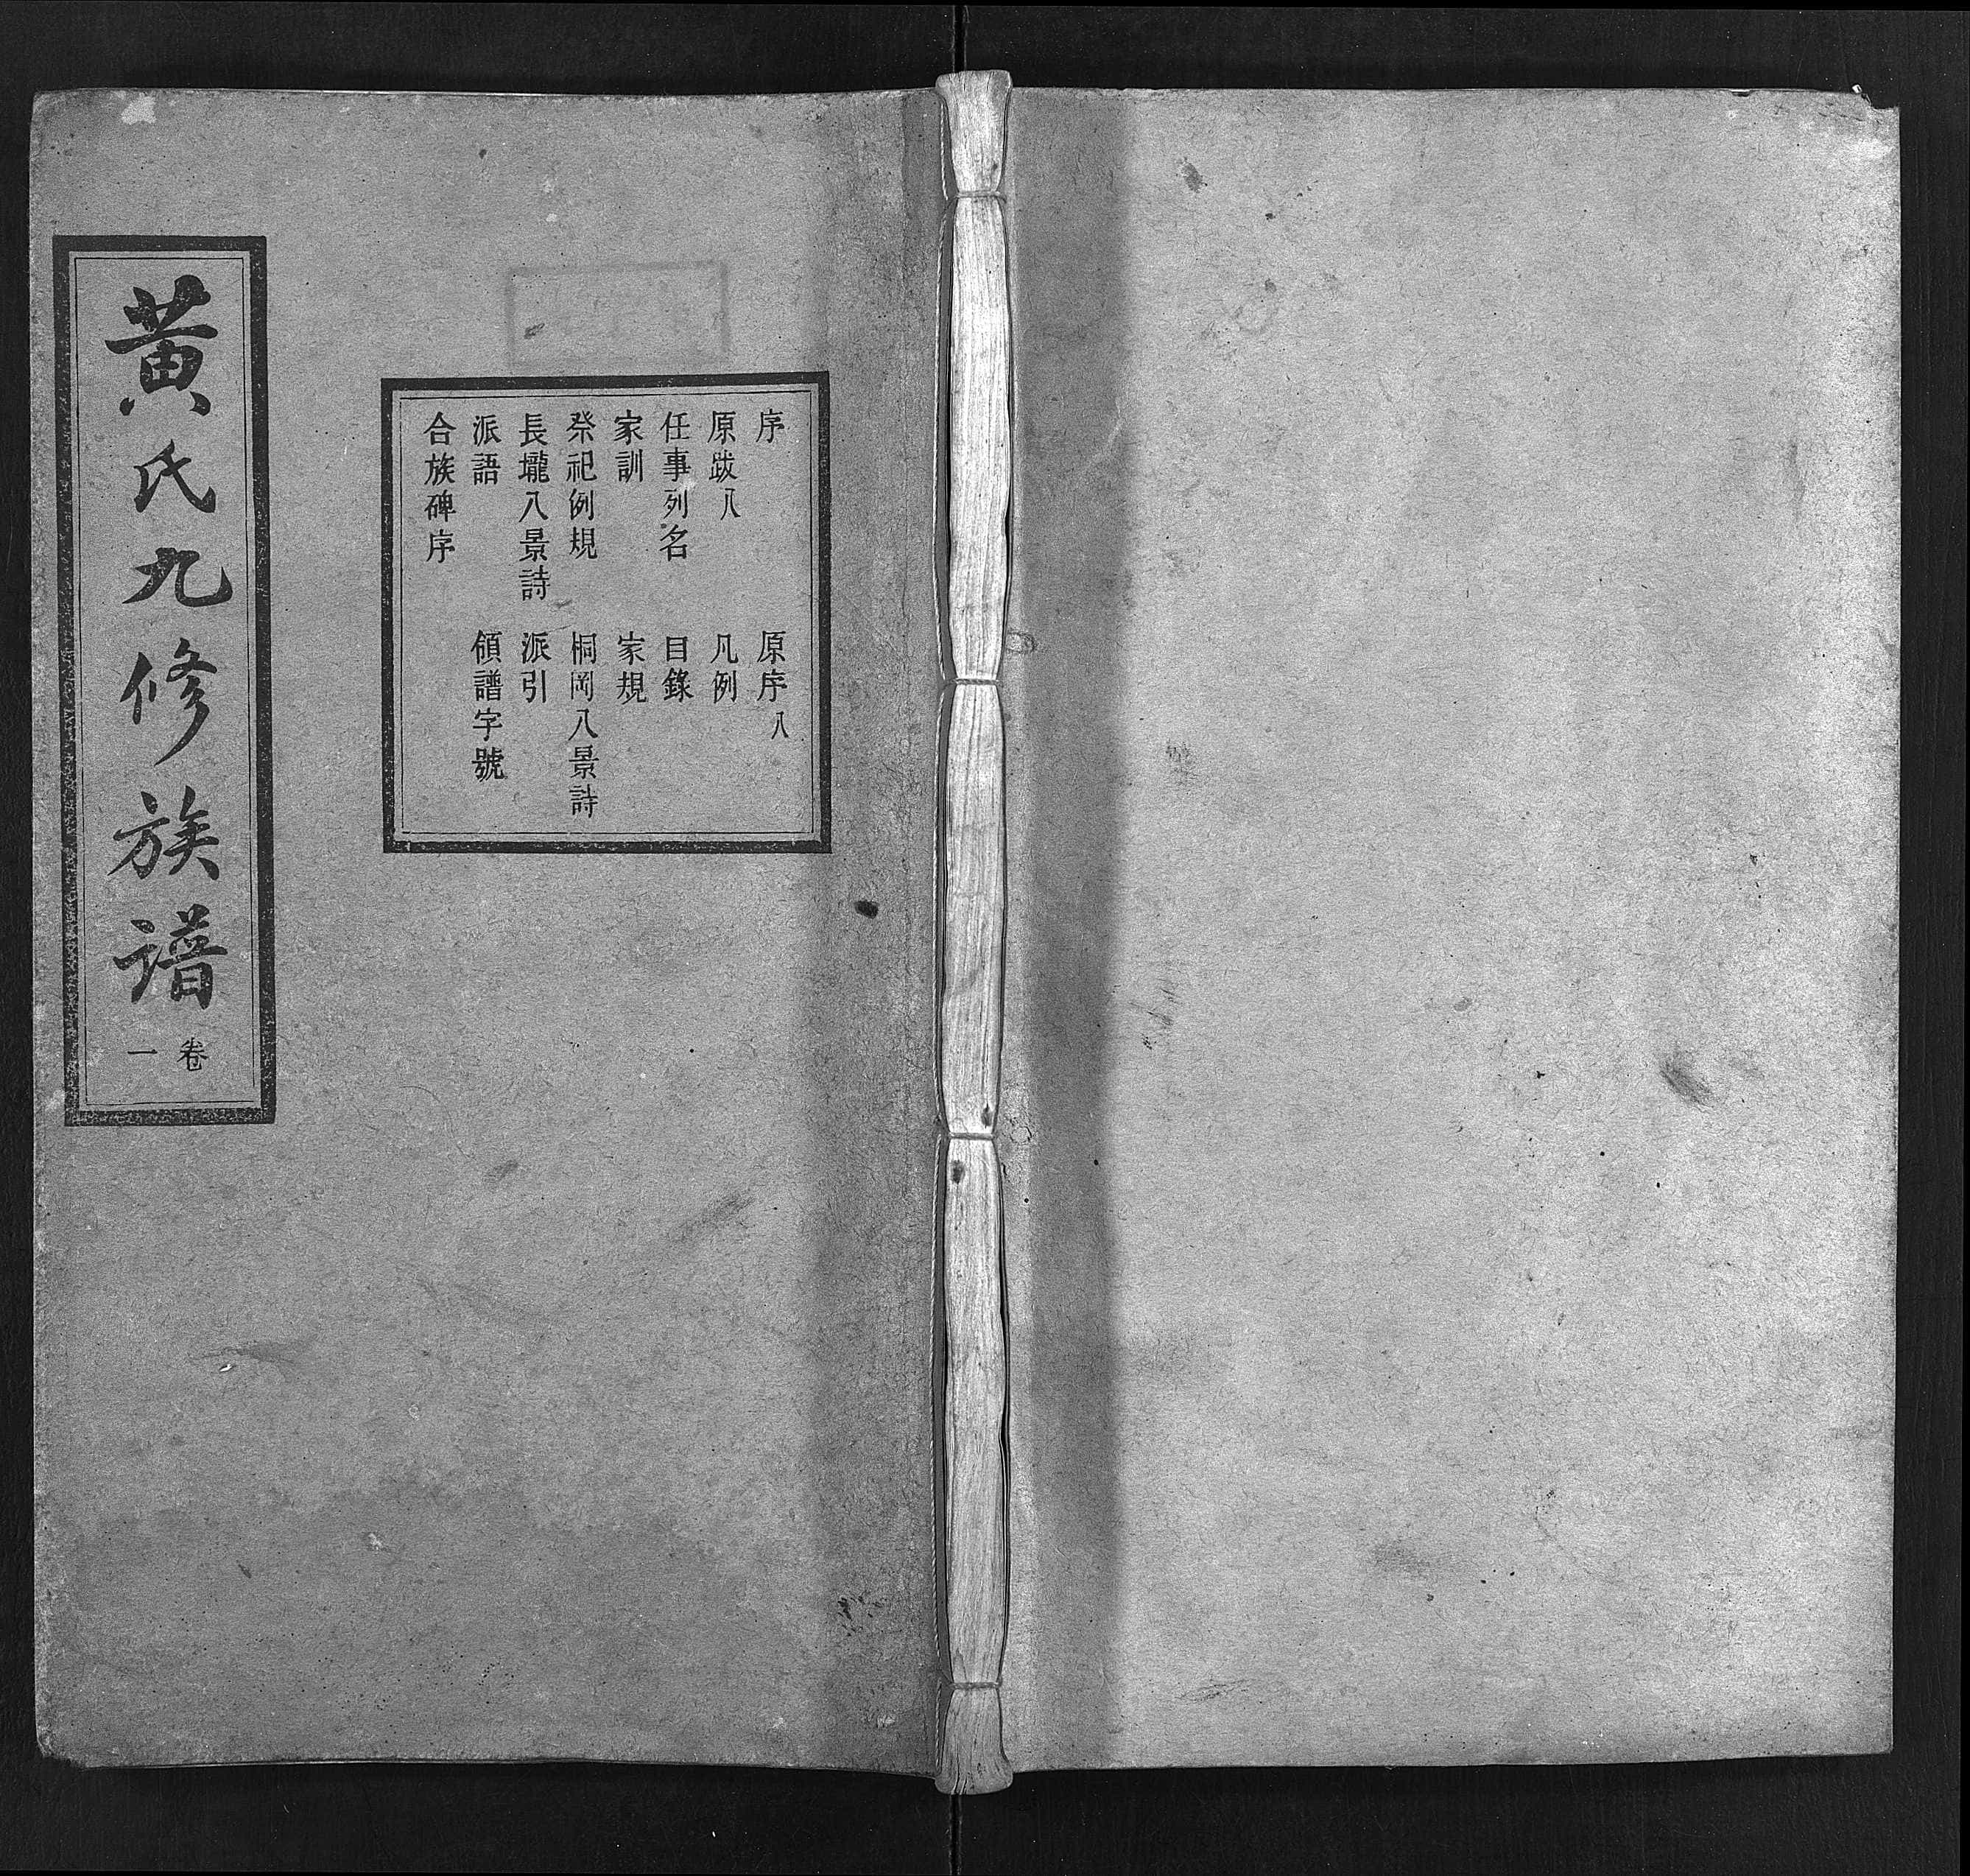 黄氏九修族譜
卷一
序
原序八
原跋八
凡例
任事列名
目錄
家訓
家規
祭祀例規
桐岡八景詩
長壠八景詩
派引
派語
領譜字號
合族碑序